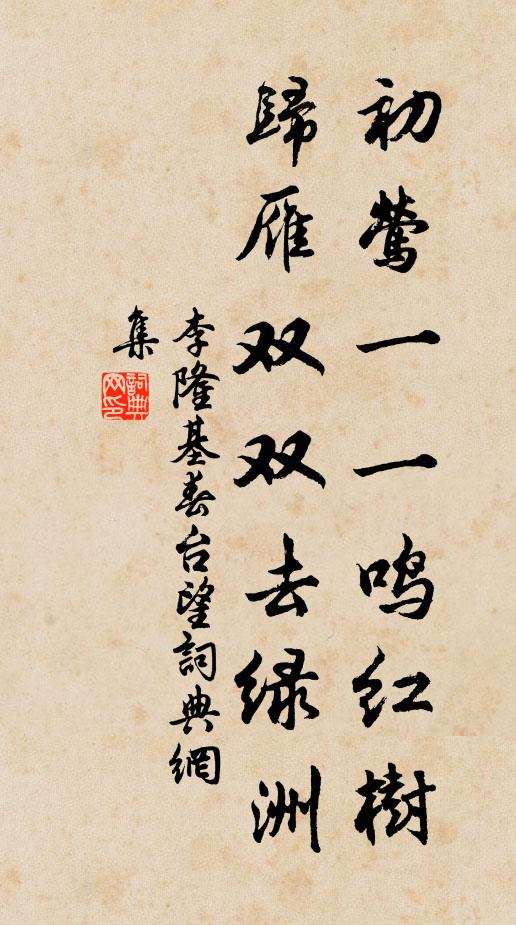 初莺一一鸣红樹
歸雁双双去绿洲
李隆基春台望詞典網
集
詞典网印